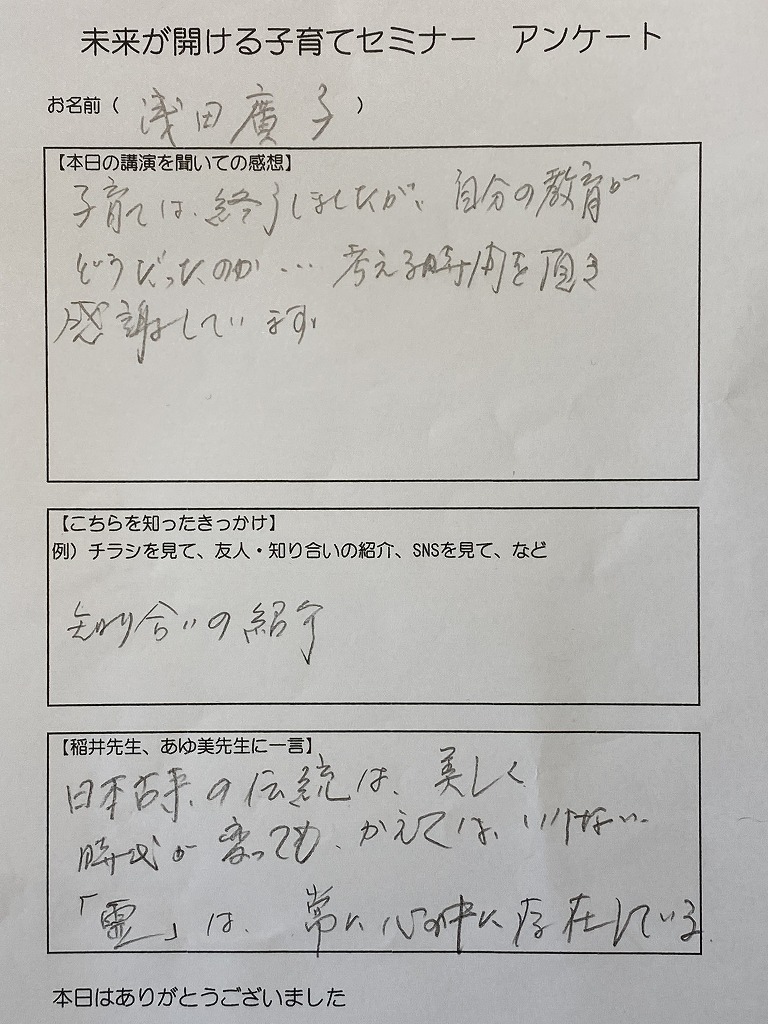 未来が開ける子育てセミナー　アンケート
お名前（ 浅田廣子 ）
【本日の講演を聞いての感想】
子育ては、終了しましたが、自分の教育が
どうだったのか… 考える時間を頂き
感謝しています
【こちらを知ったきっかけ】
例）チラシを見て、友人・知り合いの紹介、SNSを見て、など
知り合いの紹介
【稲井先生、あゆ美先生に一言】
日本古来の伝統は、美しく
時代が変っても、かえては、いけない。
「霊」は、常に心の中に存在している。
本日はありがとうございました